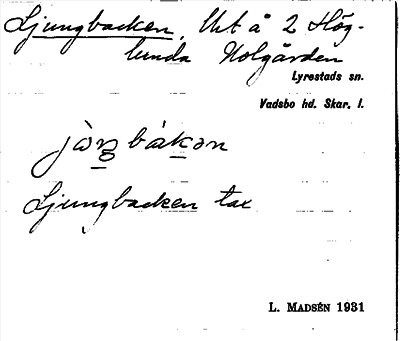 Ljungbacken, Urt å 2 Hög-
lunda Nolgården
Lyrestads sn.
Vadsbo hd. Skar. l.
Ljungbacken tax
L. MADSÉN 1931